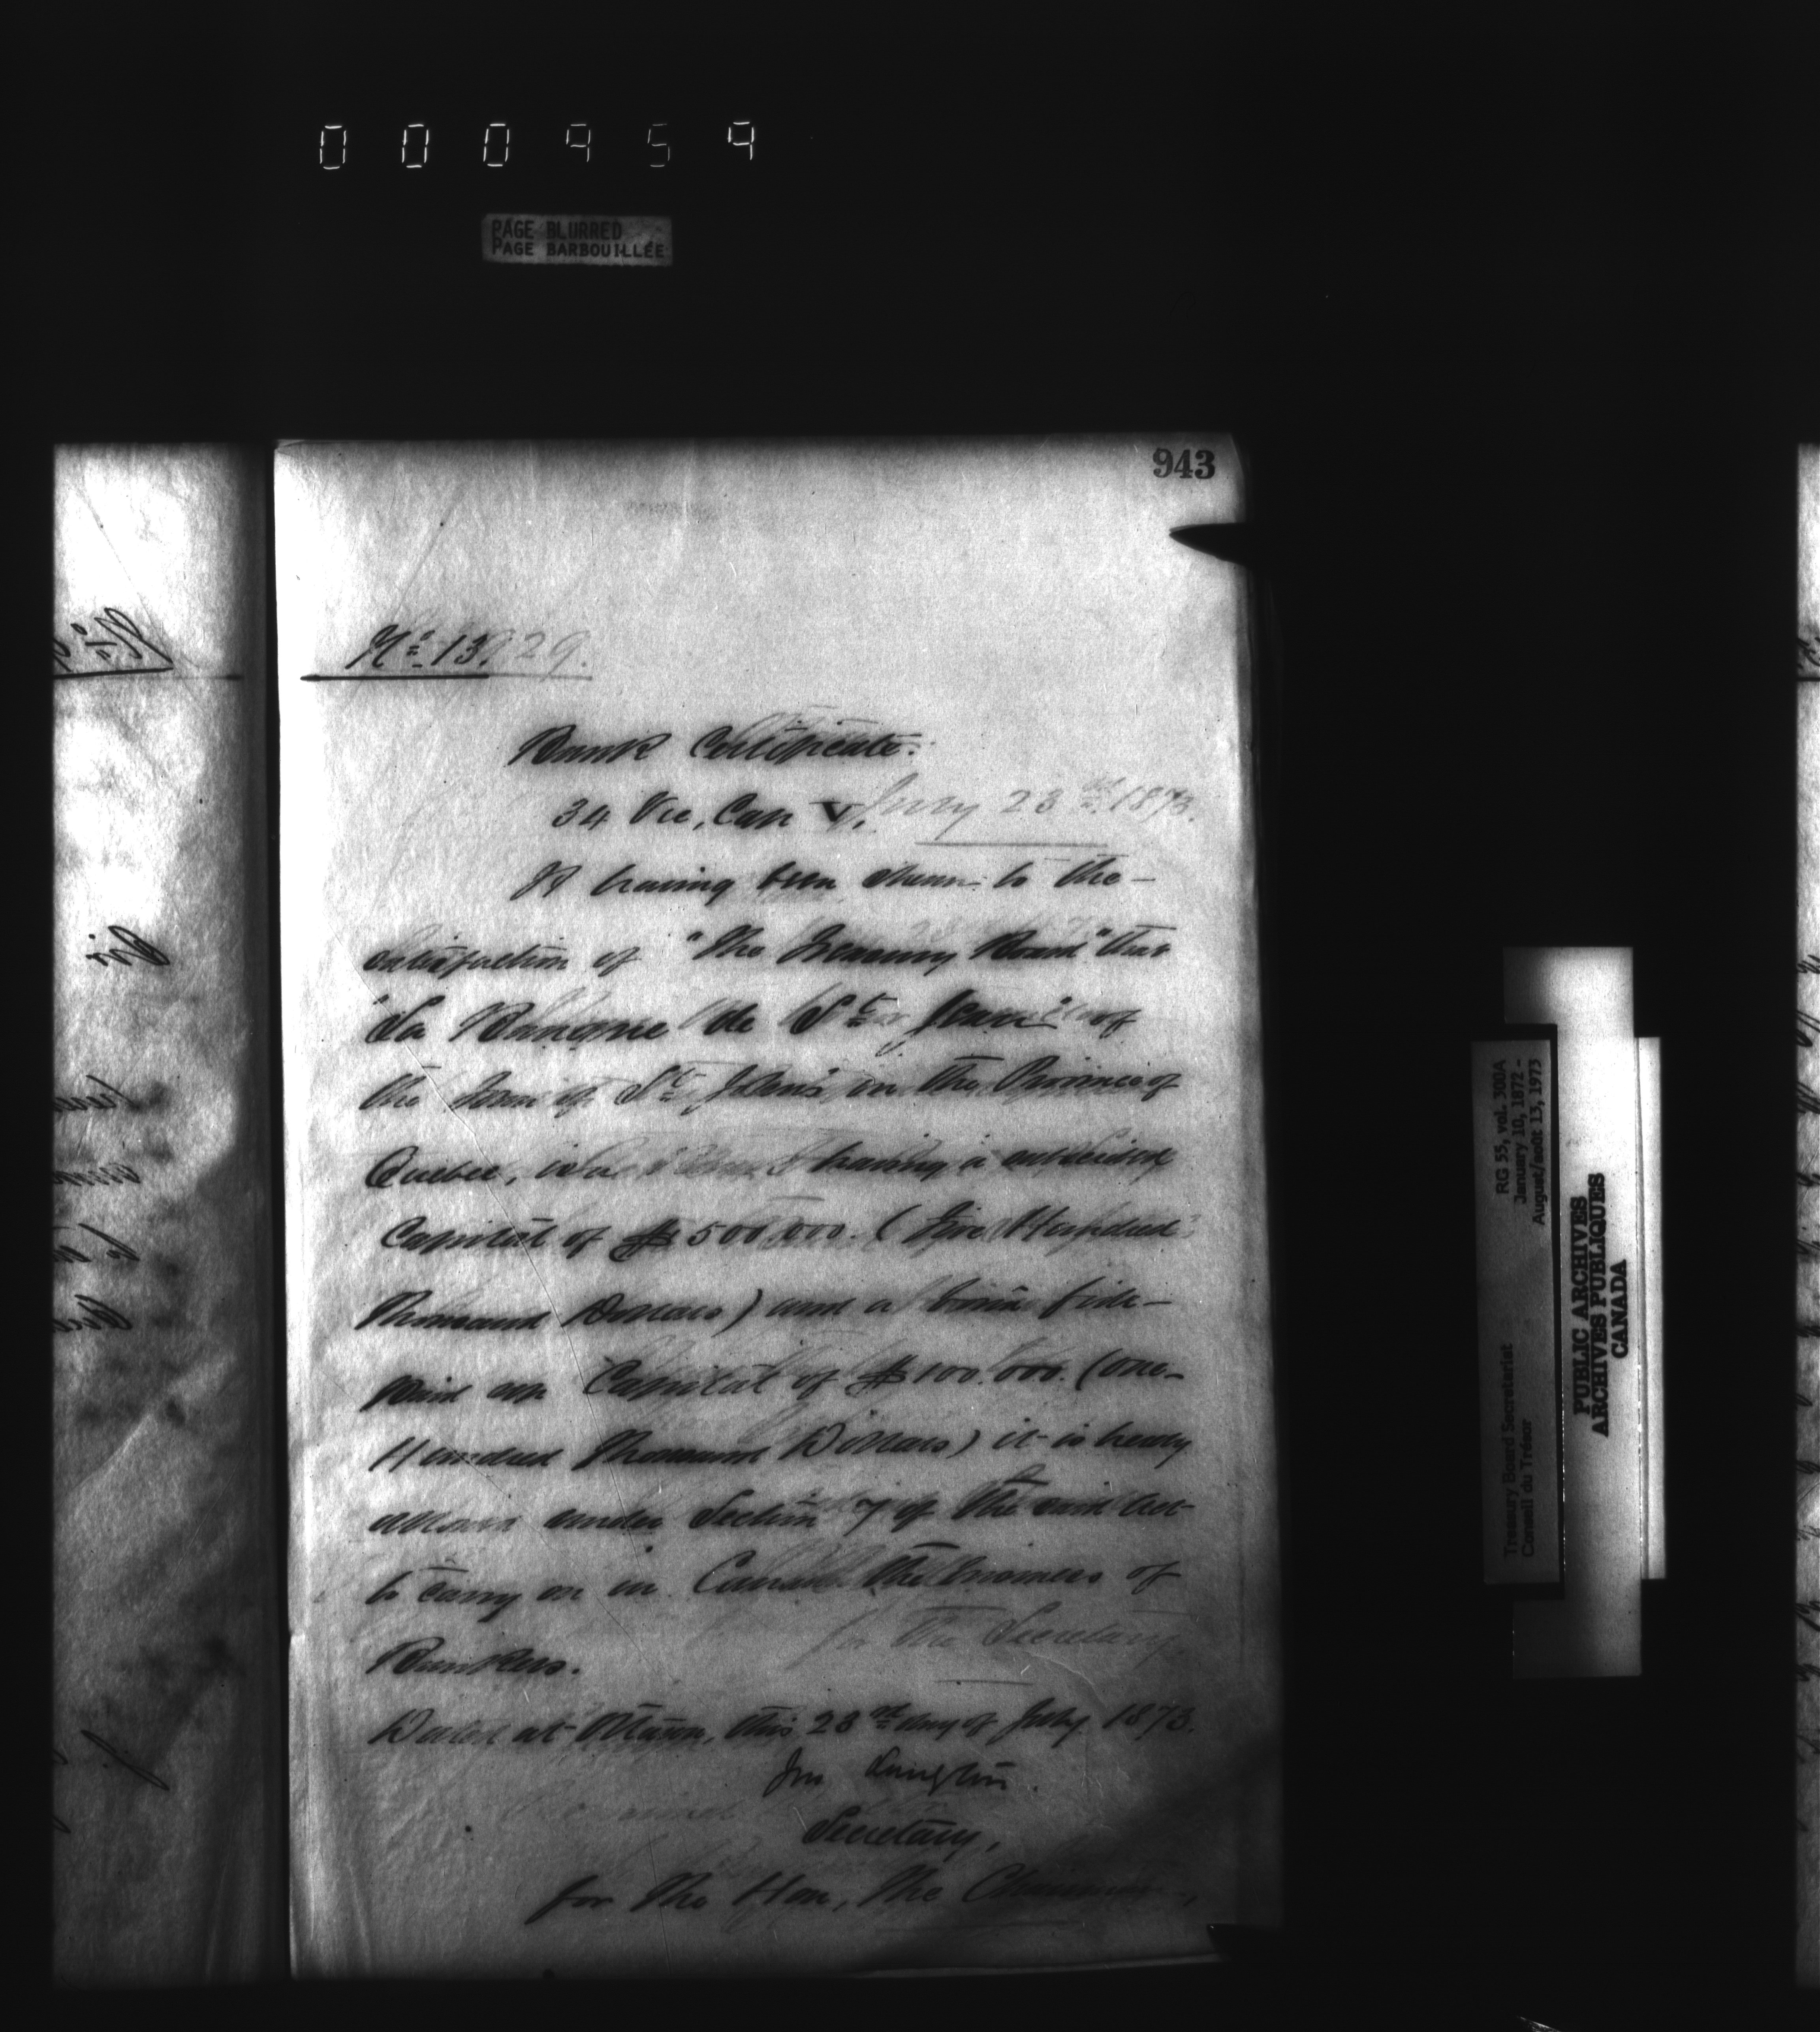 000959
PAGE BLURRED
PAGE BARBOUILLÉE
943
Nº 13.
Bank Certificate.
34 Vic, Cap V.
It having been shewn to the-
satisfaction of "The Treasury Board" that
"La Banque de St Jean" of
the Town of St John's in the Province of
Quebec, having a subscribed
Capital of $500.000. (Five Hundred
Thousand Dollars) and a bonâ fide-
paid up Capital of $100.000. (One-
Hundred Thousand Dollars) it is hereby
allowed under Section 7 of the said Act-
to carry on in Canada the business of
Bankers.
Dated at Ottawa, this 23rd day of July 1873.
Jno Langton.
Secretary,
for The Hon, The Chairman,
RG 55, vol. 300A
January 10, 1872 -
August/août 13, 1973
Treasury Board Secretariat
Conseil du Trésor
PUBLIC ARCHIVES
ARCHIVES PUBLIQUES
CANADA